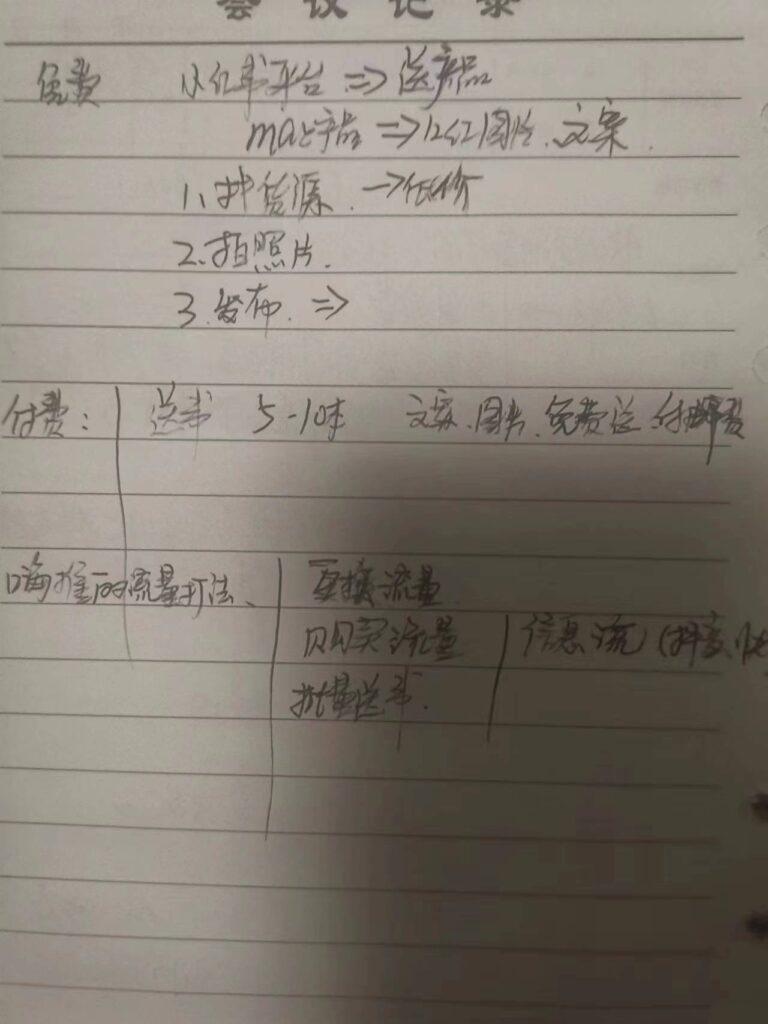 会议记录
免费 小红书平台 => 送产品
产品 => 小红图片、文案.
1、找货源. →低价
2.拍照片.
3.发布. =>
付费: 送书 5-10本 文案、图片、免费送、付邮费
嗨推的流量打法、 互换流量
购买流量 信息流 (抖音、快
批量送书.